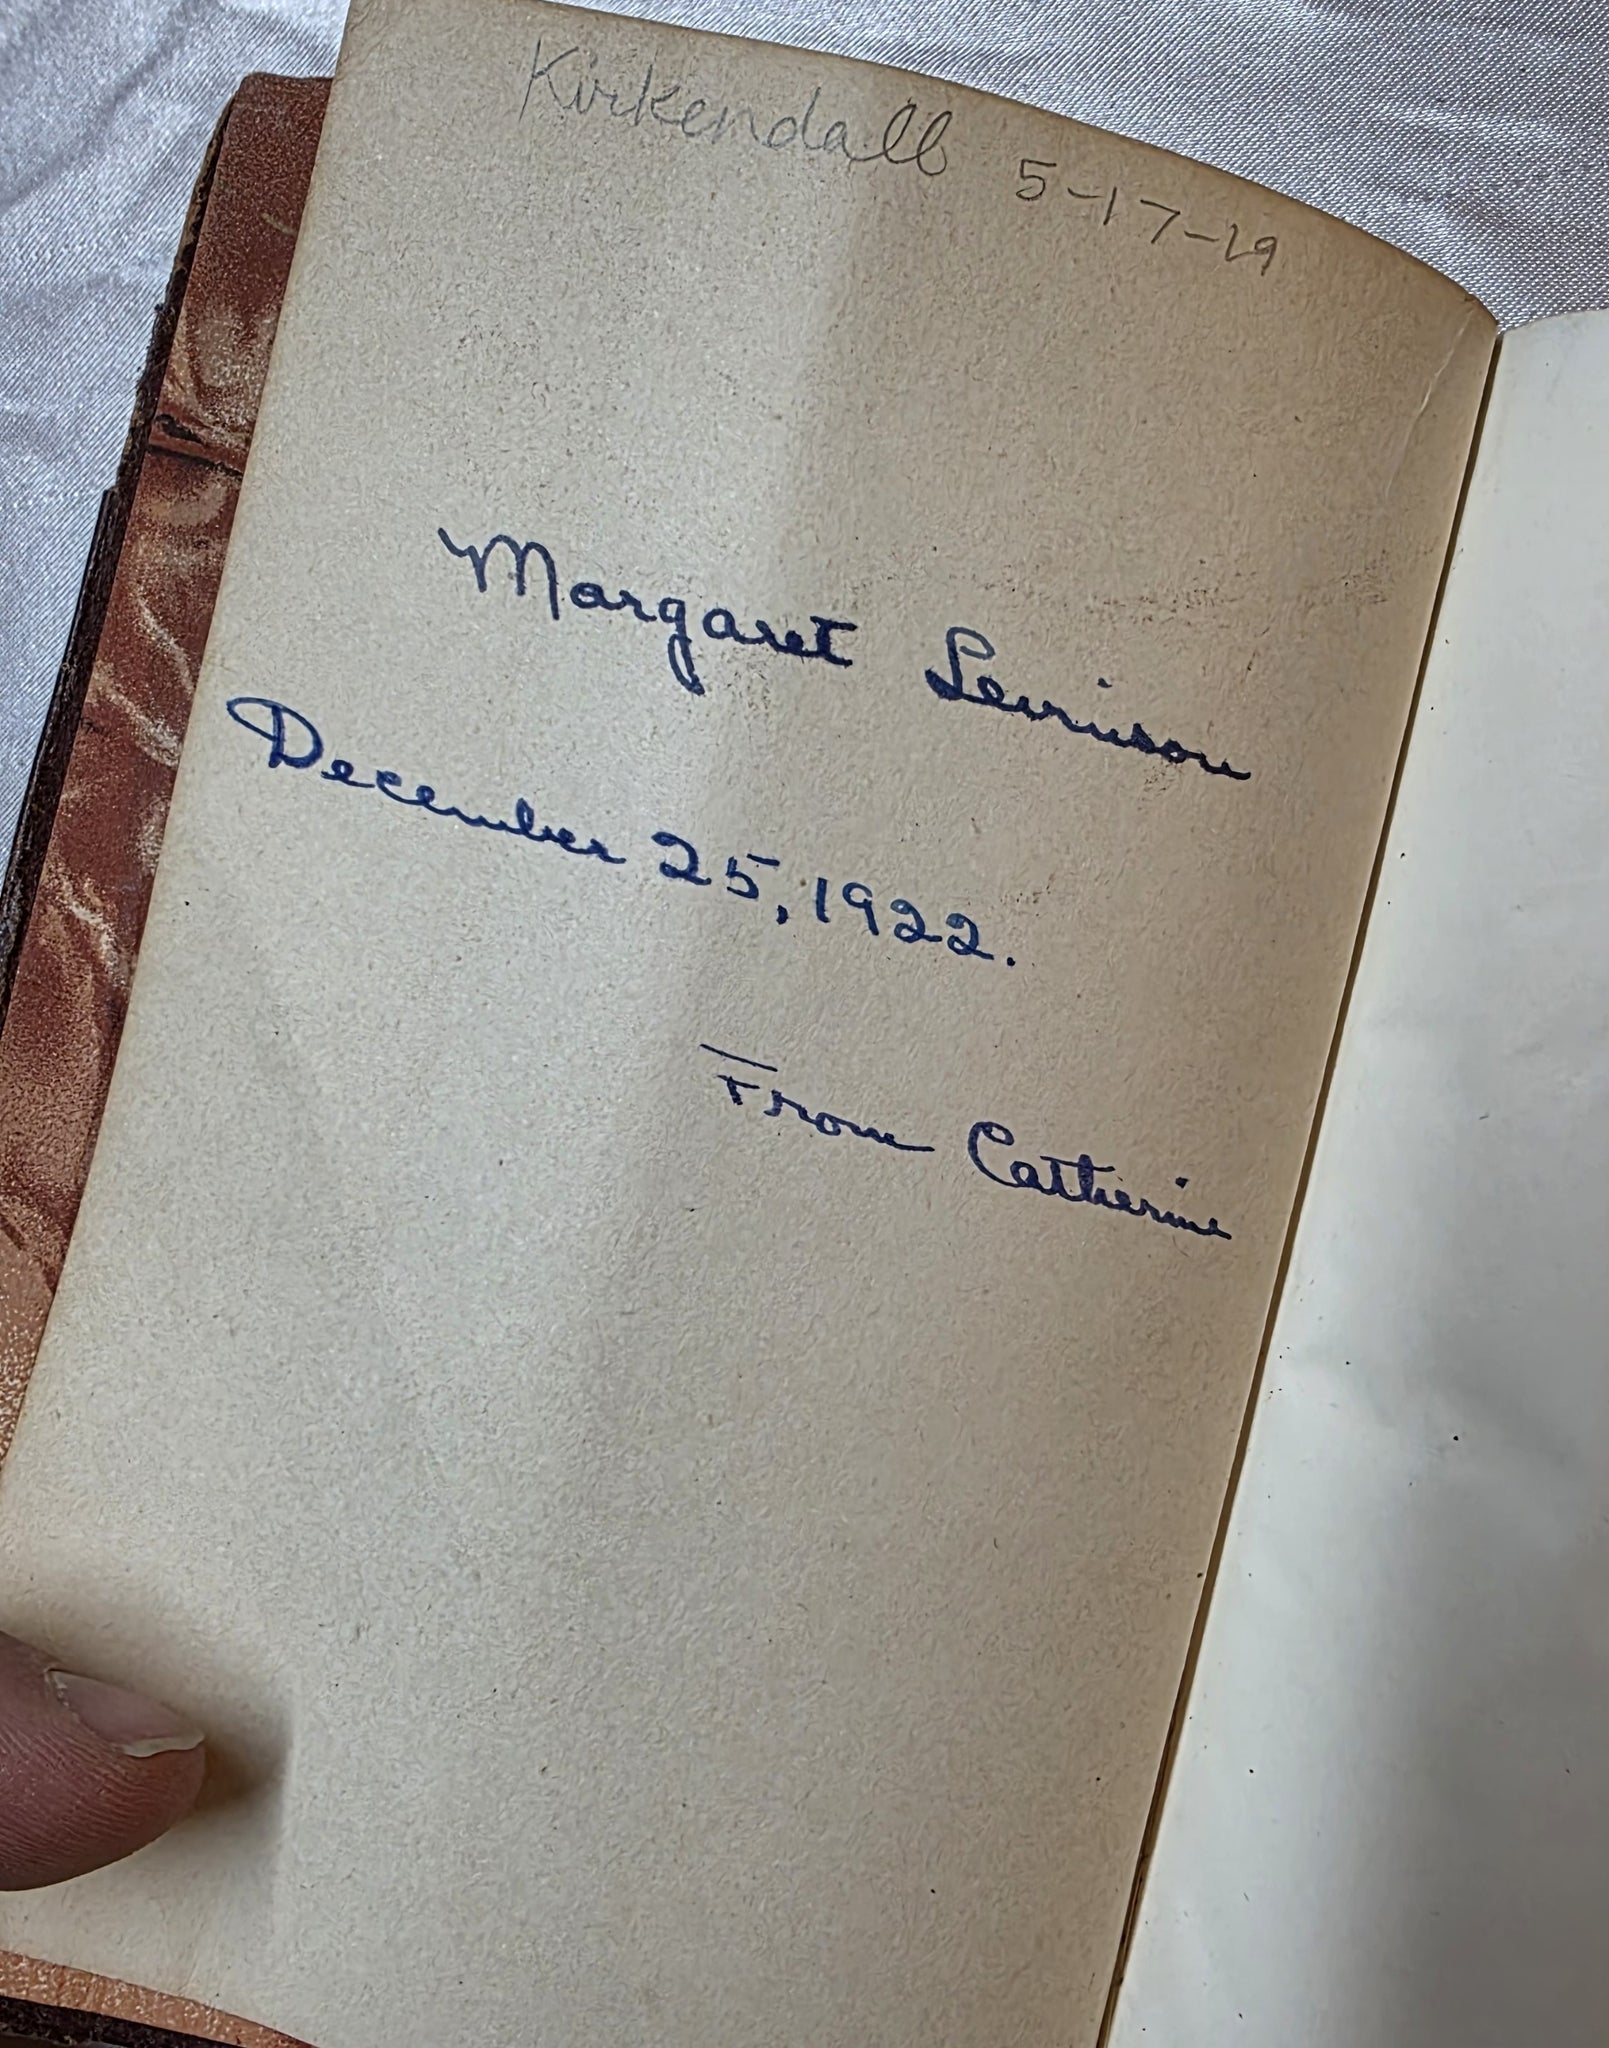 Kirkendall 5-17-19
Margaret Levinson
December 25, 1922.
From Catherine